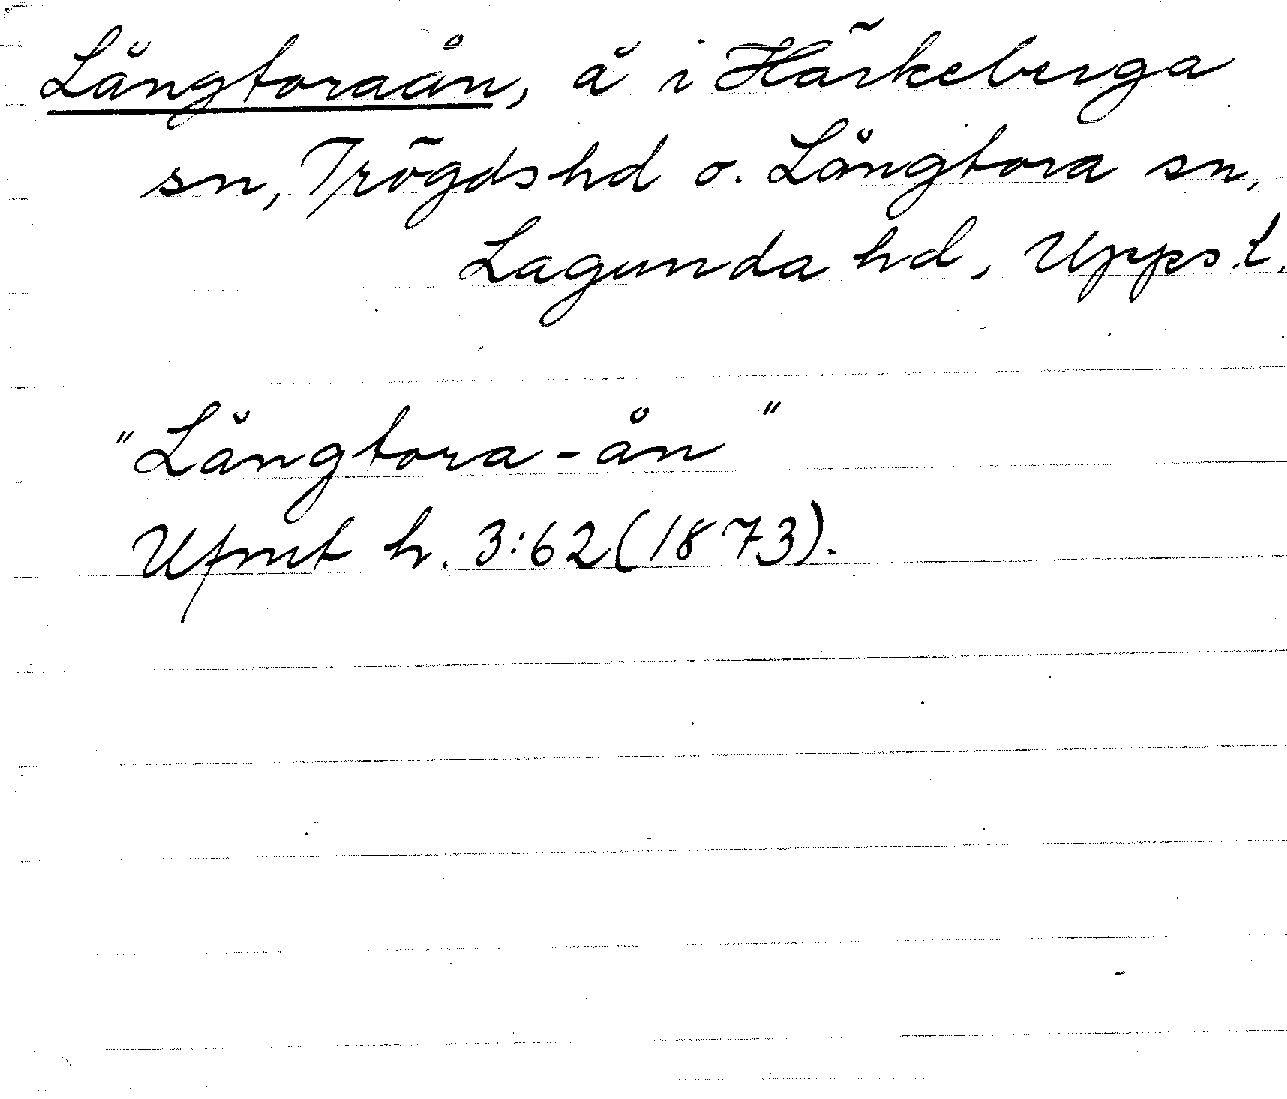 Långtoraån, å i Härkeberga
sn, Trögds hd o. Långtora sn,
Lagunda hd, Upps. l.
"Långtora-ån"
Ufmt h. 3:62 (1873).